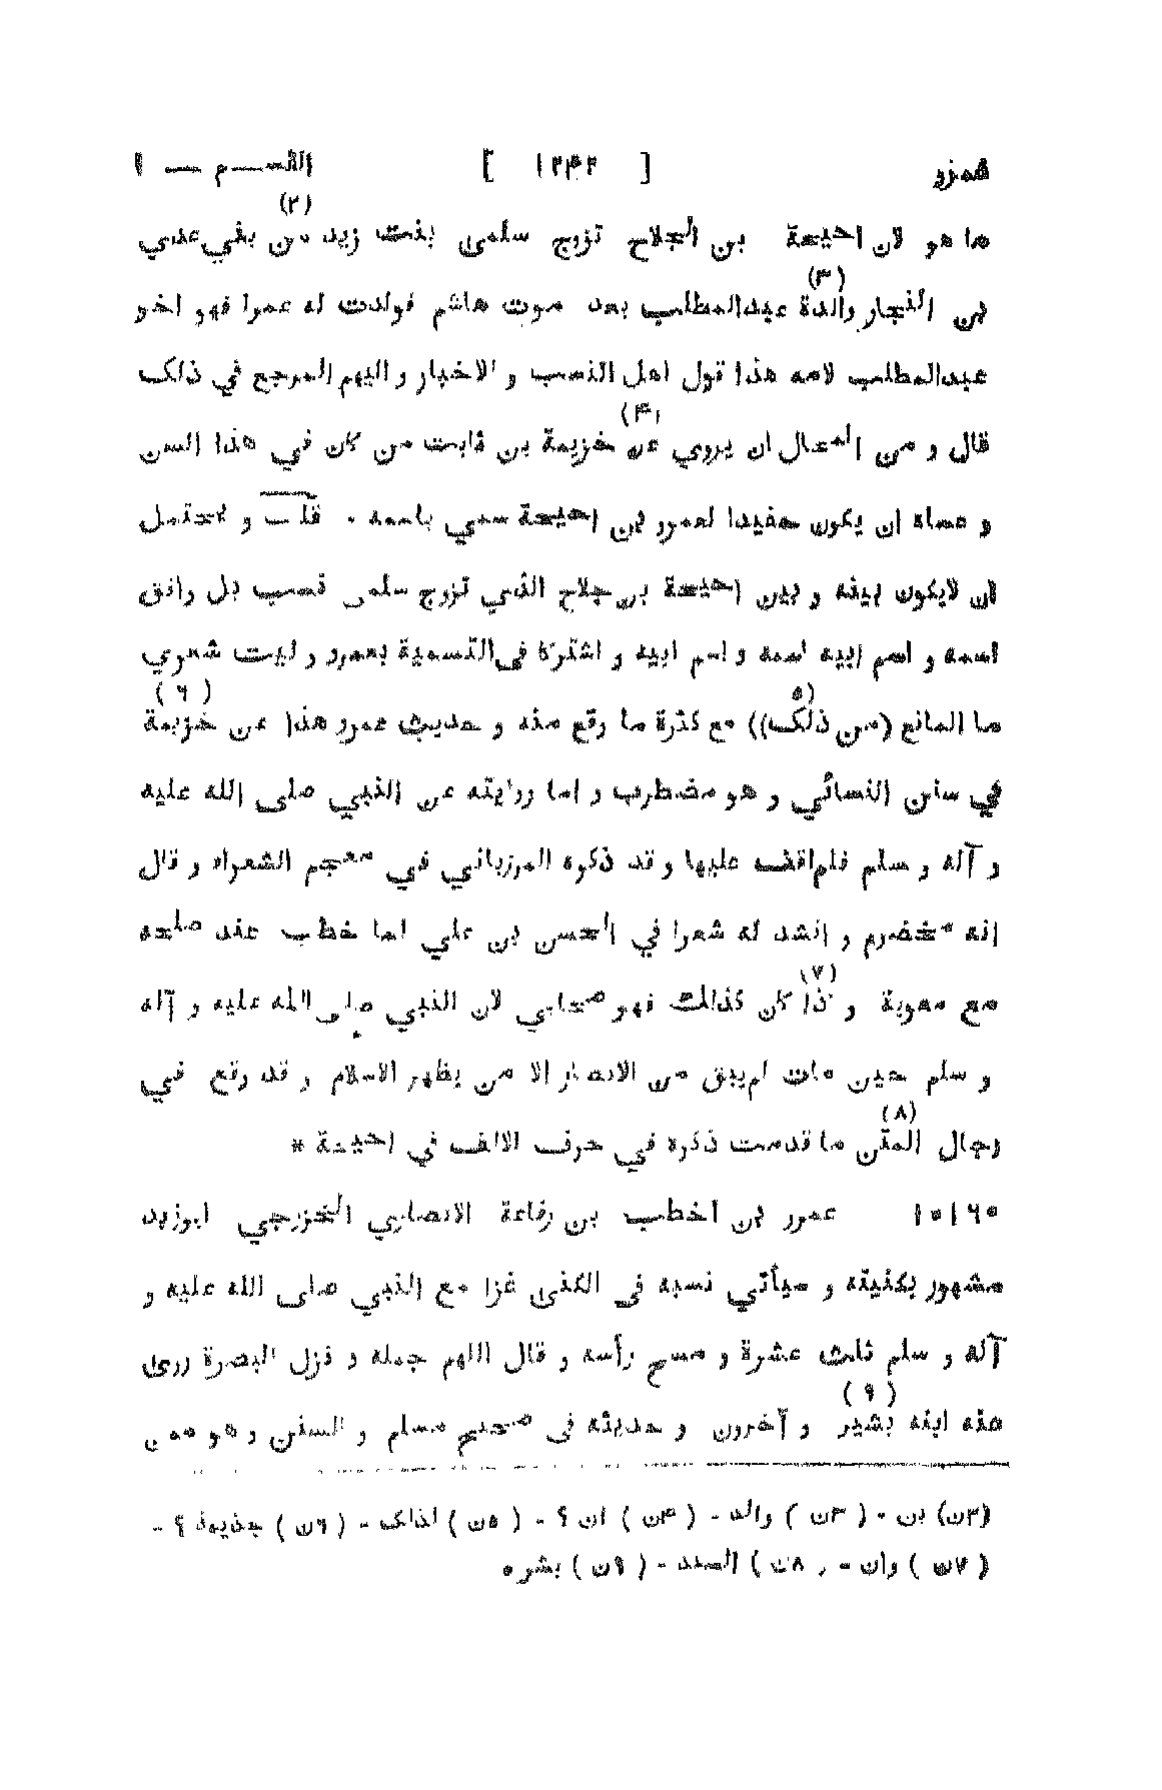 عمرو [ ١٢٤٢ ] القسم — ١
ما هو لان احيحة بن الجلاح تزوج سلمى بنت زيد من (٢) بني عدي
بن النجار والدة (٣) عبدالمطلب بعد موت هاشم فولدت له عمرا فهو اخو
عبدالمطلب لامه هذا قول اهل النسب و الاخبار و اليهم المرجع في ذلك
قال و من المحال ان يروي عن (۴) خزيمة بن ثابت من كان في هذا السن
و عساه ان يكون حفيدا لعمرو بن احيحة سمي باسمه . قلت و يحتمل
ان لايكون بينه و بين احيحة بن جلاح الذي تزوج سلمى نسب بل وافق
اسمه و اسم ابيه اسمه و اسم ابيه و اشتركا فى التسمية بعمرو و ليت شعري
ما المانع (من ذلك (٥)) مع كثرة ما وقع منه و حديث عمرو هذا عن خزيمة (٦)
في سنن النسائي و هو مضطرب و اما روايته عن النبي صلى الله عليه
و آله و سلم فلم اقف عليها و قد ذكره المرزباني في معجم الشعراء و قال
انه مخضرم و انشد له شعرا في الحسن بن علي لما خطب عند صلحه
مع معوية و اذا (٧) كان كذالك فهو صحابي لان النبي صلى الله عليه و آله
و سلم حين مات لم يبق من الانصار الا من يظهر الاسلام و قد وقع في
رجال المتن (٨) ما قدمت ذكره في حرف الالف في احيحة *
١٠١٦٥ عمرو بن اخطب بن رفاعة الانصاري الخزرجي ابوزيد
مشهور بكنيته و سيأتي نسبه فى الكنى غزا مع النبي صلى الله عليه و
آله و سلم ثلث عشرة و مسح رأسه و قال اللهم جمله و نزل البصرة روى
عنه ابنه بشير (٩) و آخرون و حديثه فى صحيح مسلم و السنن و هو ممن
(٢ن) بن - ( ٣ن ) والد - ( ۴ن ) ان ؟ - ( ٥ن ) لذالك - ( ٦ن ) جذيمة ؟ -
( ٧ن ) وان - ( ٨ن ) السند - ( ٩ن ) بشر ه